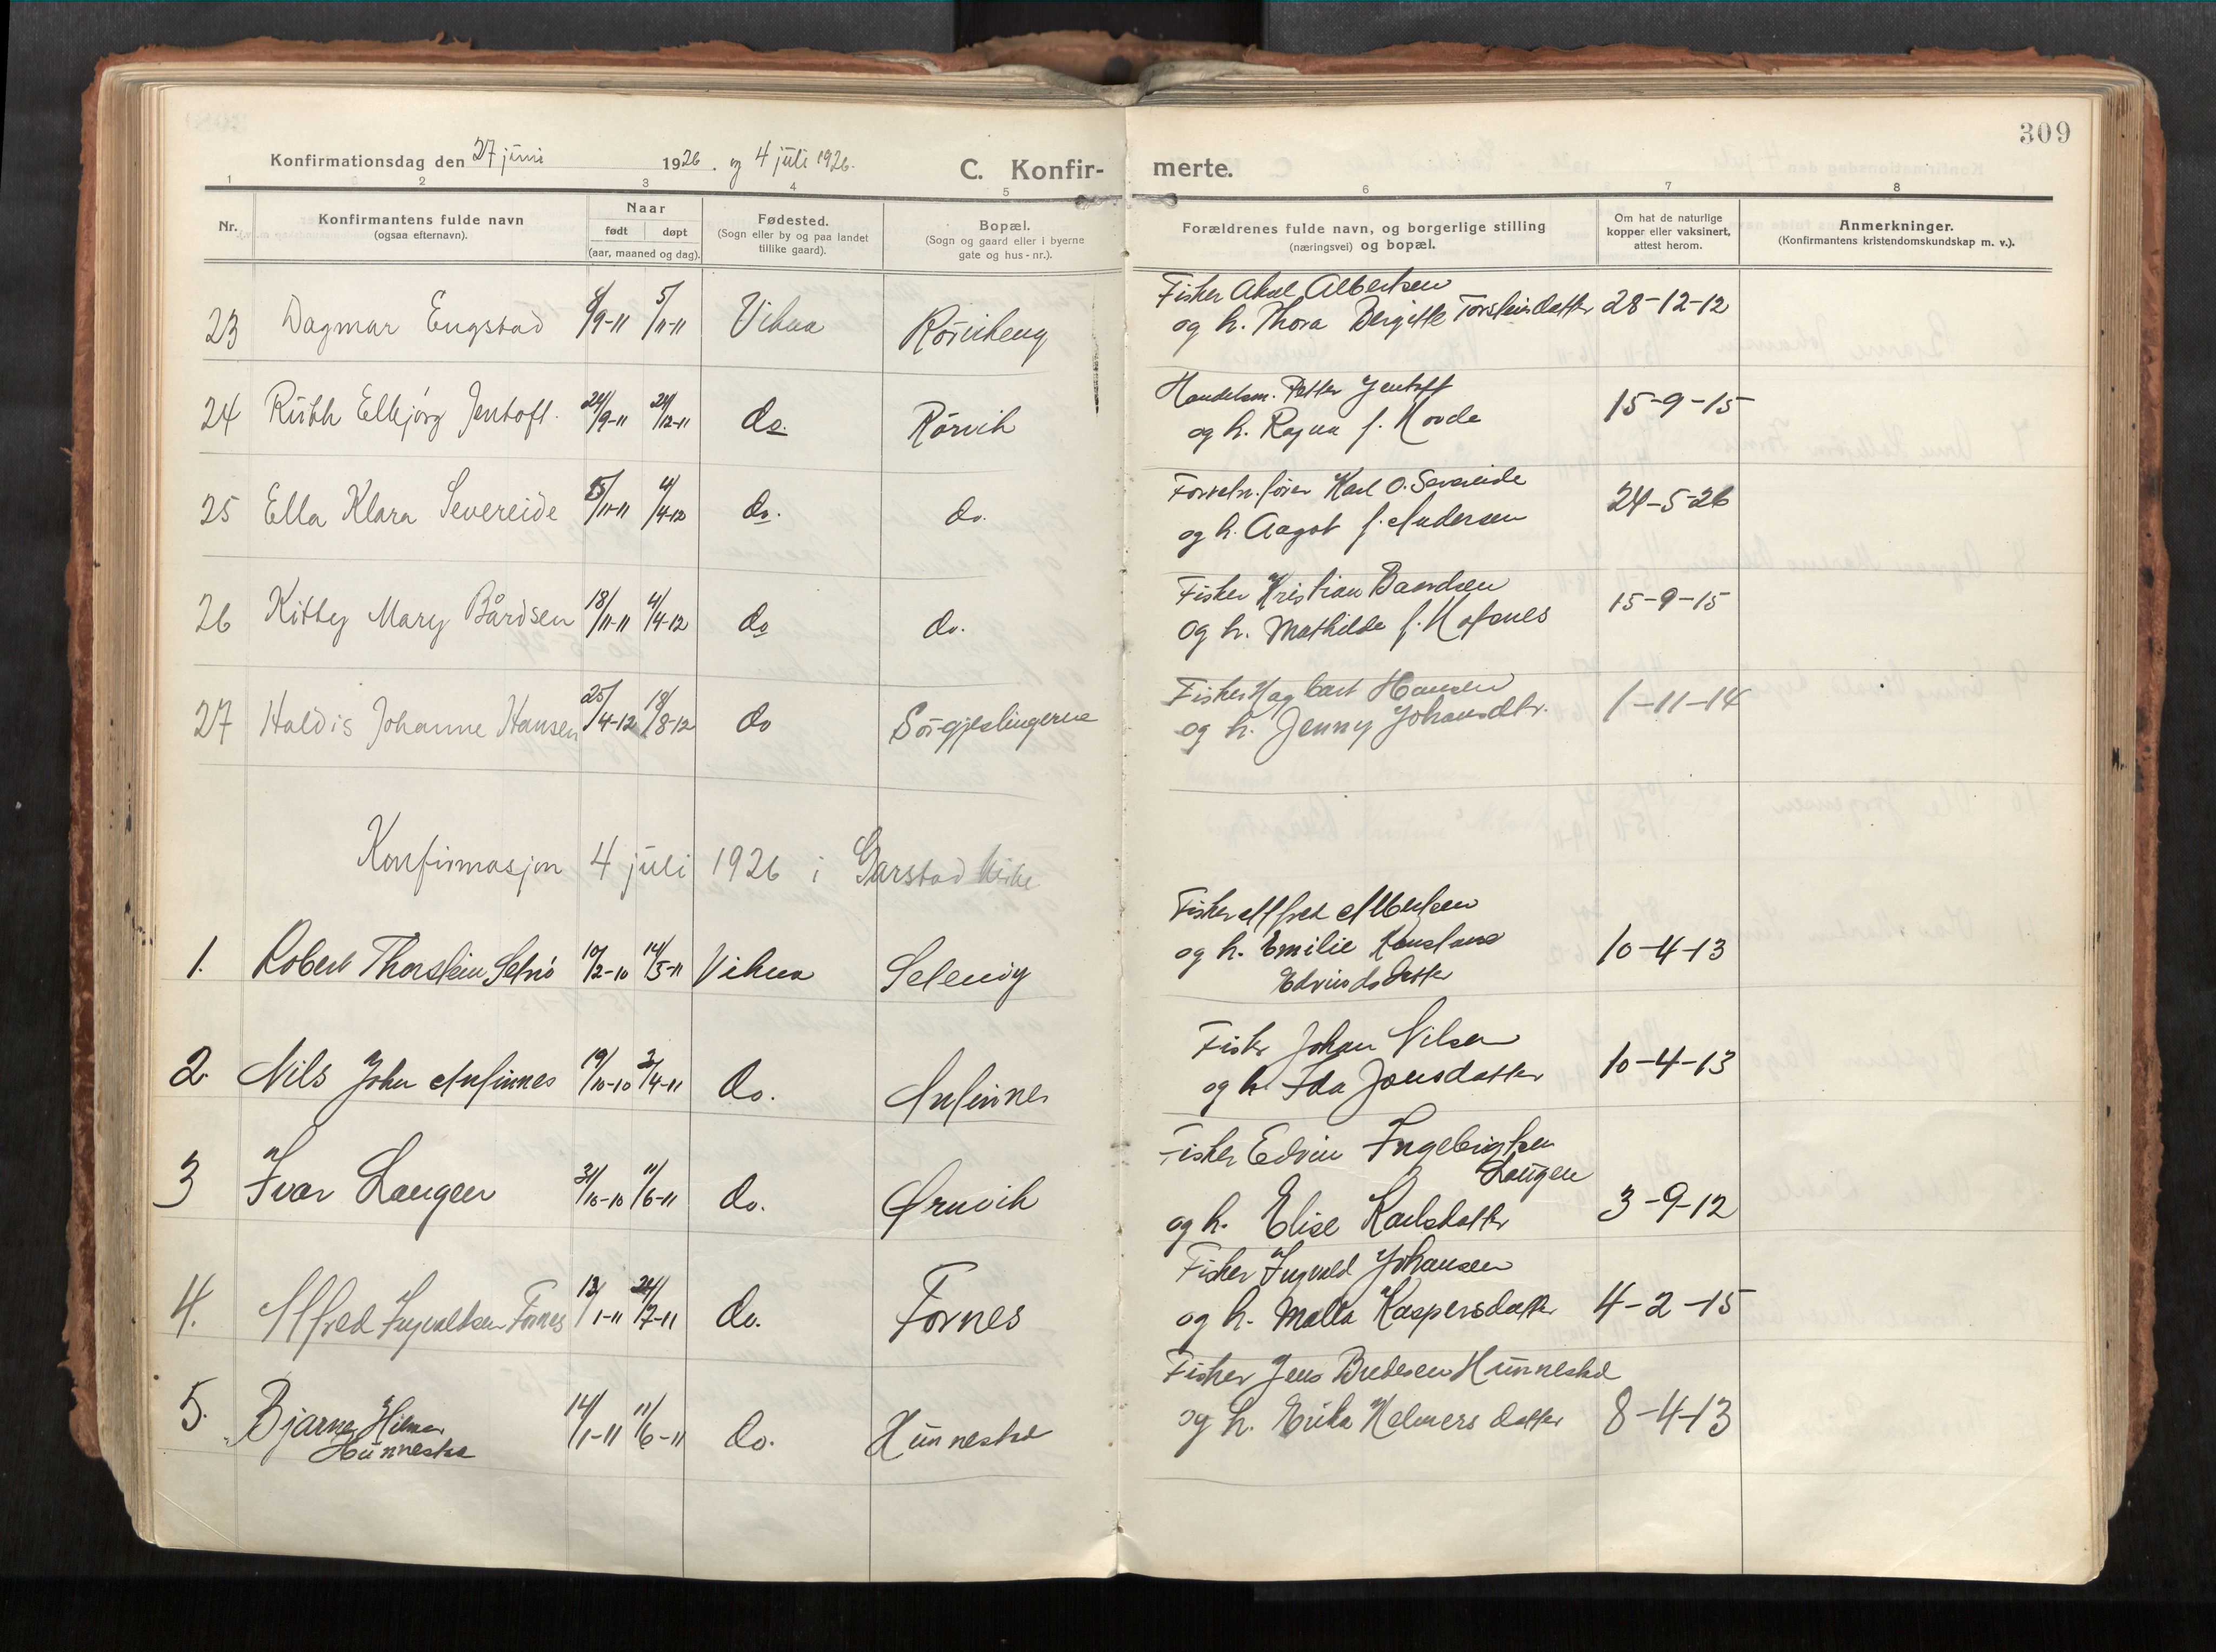 309
Konfirmationsdag den 27 juni 1926. og 4 juli 1926.
C. Konfir- merte.
1 2 3 4 5 6 7 8
Nr.
Konfirmantens fulde navn
(ogsaa efternavn).
Naar
født døpt
(aar, maaned og dag).
Fødested.
(Sogn eller by og paa landet
tillike gaard).
Bopæl.
(Sogn og gaard eller i byerne
gate og hus-nr.).
Forældrenes fulde navn, og borgerlige stilling
(næringsvei) og bopæl.
Om hat de naturlige
kopper eller vaksinert,
attest herom.
Anmerkninger.
(Konfirmantens kristendomskundskap m. v.).
Fisker Aksel Albertsen
23 Dagmar Engstad /9-11 5/11-11 Vikna og h. Thora Bergitte Torsteinsdatter 28-12-12
Handelsm. Petter Jentoft
24 Ruth Elbjørg Jentoft. 24/9-11 /12-11 do. Rørvik og h. Ragna f. Hovde 15-9-15
Karl O. Severeide
25 Ella Klara Severeide /11-11 4/4-12 do. do. og h. Aagot f. Andersen 24-5-26
Fisker Kristian Baardsen
26 Kitty Mary Bårdsen 18/11-11 4/4-12 do do. og h. Mathilde f. Hofsnes 15-9-15
Fisker Hagbart Hansen
27 Haldis Johanne Hansen 25/4-12 18/8-12 do Sørgjeslingerne og h. Jenny Johansdtr. 1-11-14
Konfirmasjon 4 juli 1926 i Garstad kirke
Fisker Alfred Albertsen
1. Robert Thorstein Selnö 10/12-10 14/5-11 Vikna Selenöy og h. Emilie Konstanse 10-4-13
Edvindsdatter
Fisker Johan Nilsen
2. Nils John Anfinnes 19/10-10 2/4-11 do. Anfinnes og h. Ida Jonsdatter 10-4-13
Fisker Edvin Ingebrigtsen
Laugen
3 Ivar Laugen 31/10-10 11/6-11 do. Ørnvik og h. Elise Karlsdatter 3-9-12
Fisker Ingvald Johansen
4. Alfred Ingvaldsen Fornes /1-11 24/7-11 do. Fornes og h. Malla Kaspersdatter 4-2-15
Fisker Jens Hunnestad
5. Bjarne Hilmar 14/1-11 11/6-11 do. Hunnestad og h. Erika Helmersdatter 8-4-13
Hunnestad